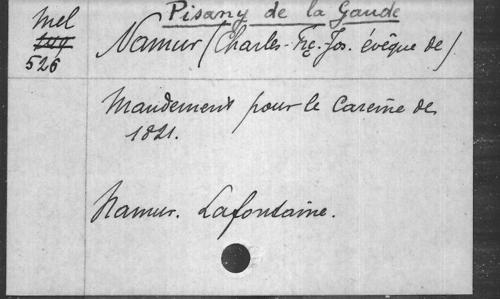 Mel
526
Pisany de la Gaude
Namur (Charles-Frç.-Jos. évêque de)
Mandement pour le Carême de
1821.
Namur. Lafontaine.